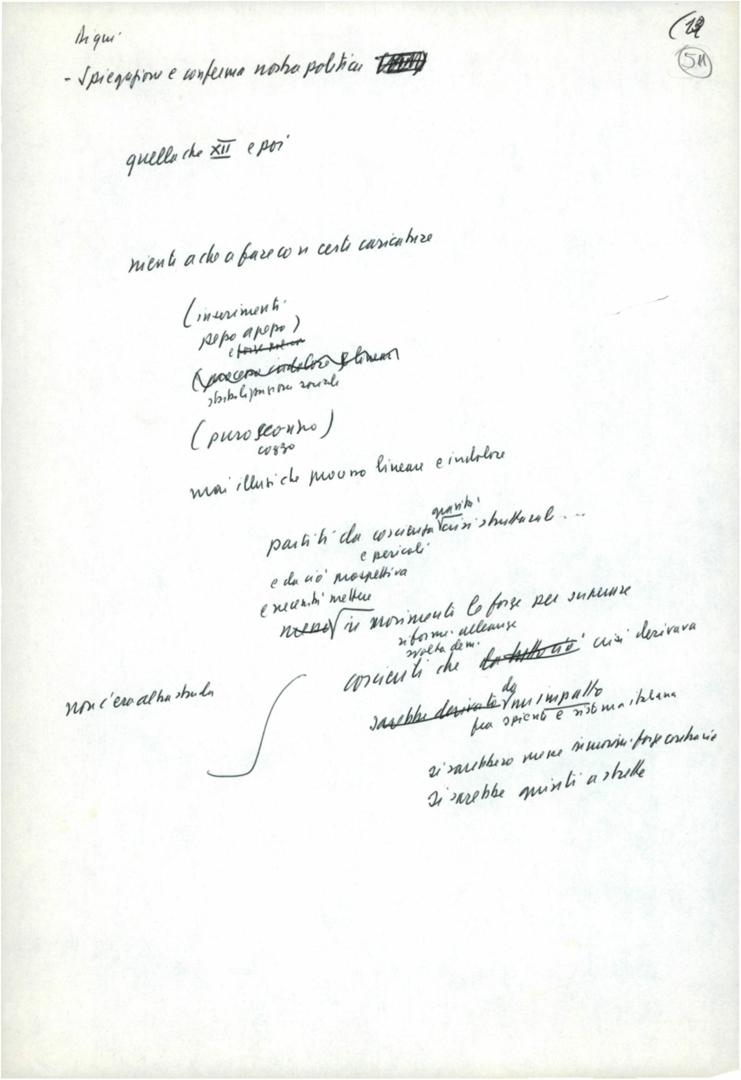 Di qui
(12
511
- Spiegazione e conferma nostra politica
quella che XII e poi
niente a che a fare con certe caricature
(inserimenti
pezzo a pezzo)
e
stabilizzazione sociale
(puro scontro)
mai illusi che processo lineare e indolore
gravità
partiti da coscienza crisi strutturale...
e pericoli
e da ciò prospettiva
e necessità mettere
in movimento le forze per superare
riforme alleanze
svolta dem.
coscienti che da tutto ciò crisi derivava
non c'era altra strada
sarebbe derivato da un impatto
fra spinte e sistema italiano
si sarebbero messe in movim. forze contrarie
si sarebbe giunti a strette